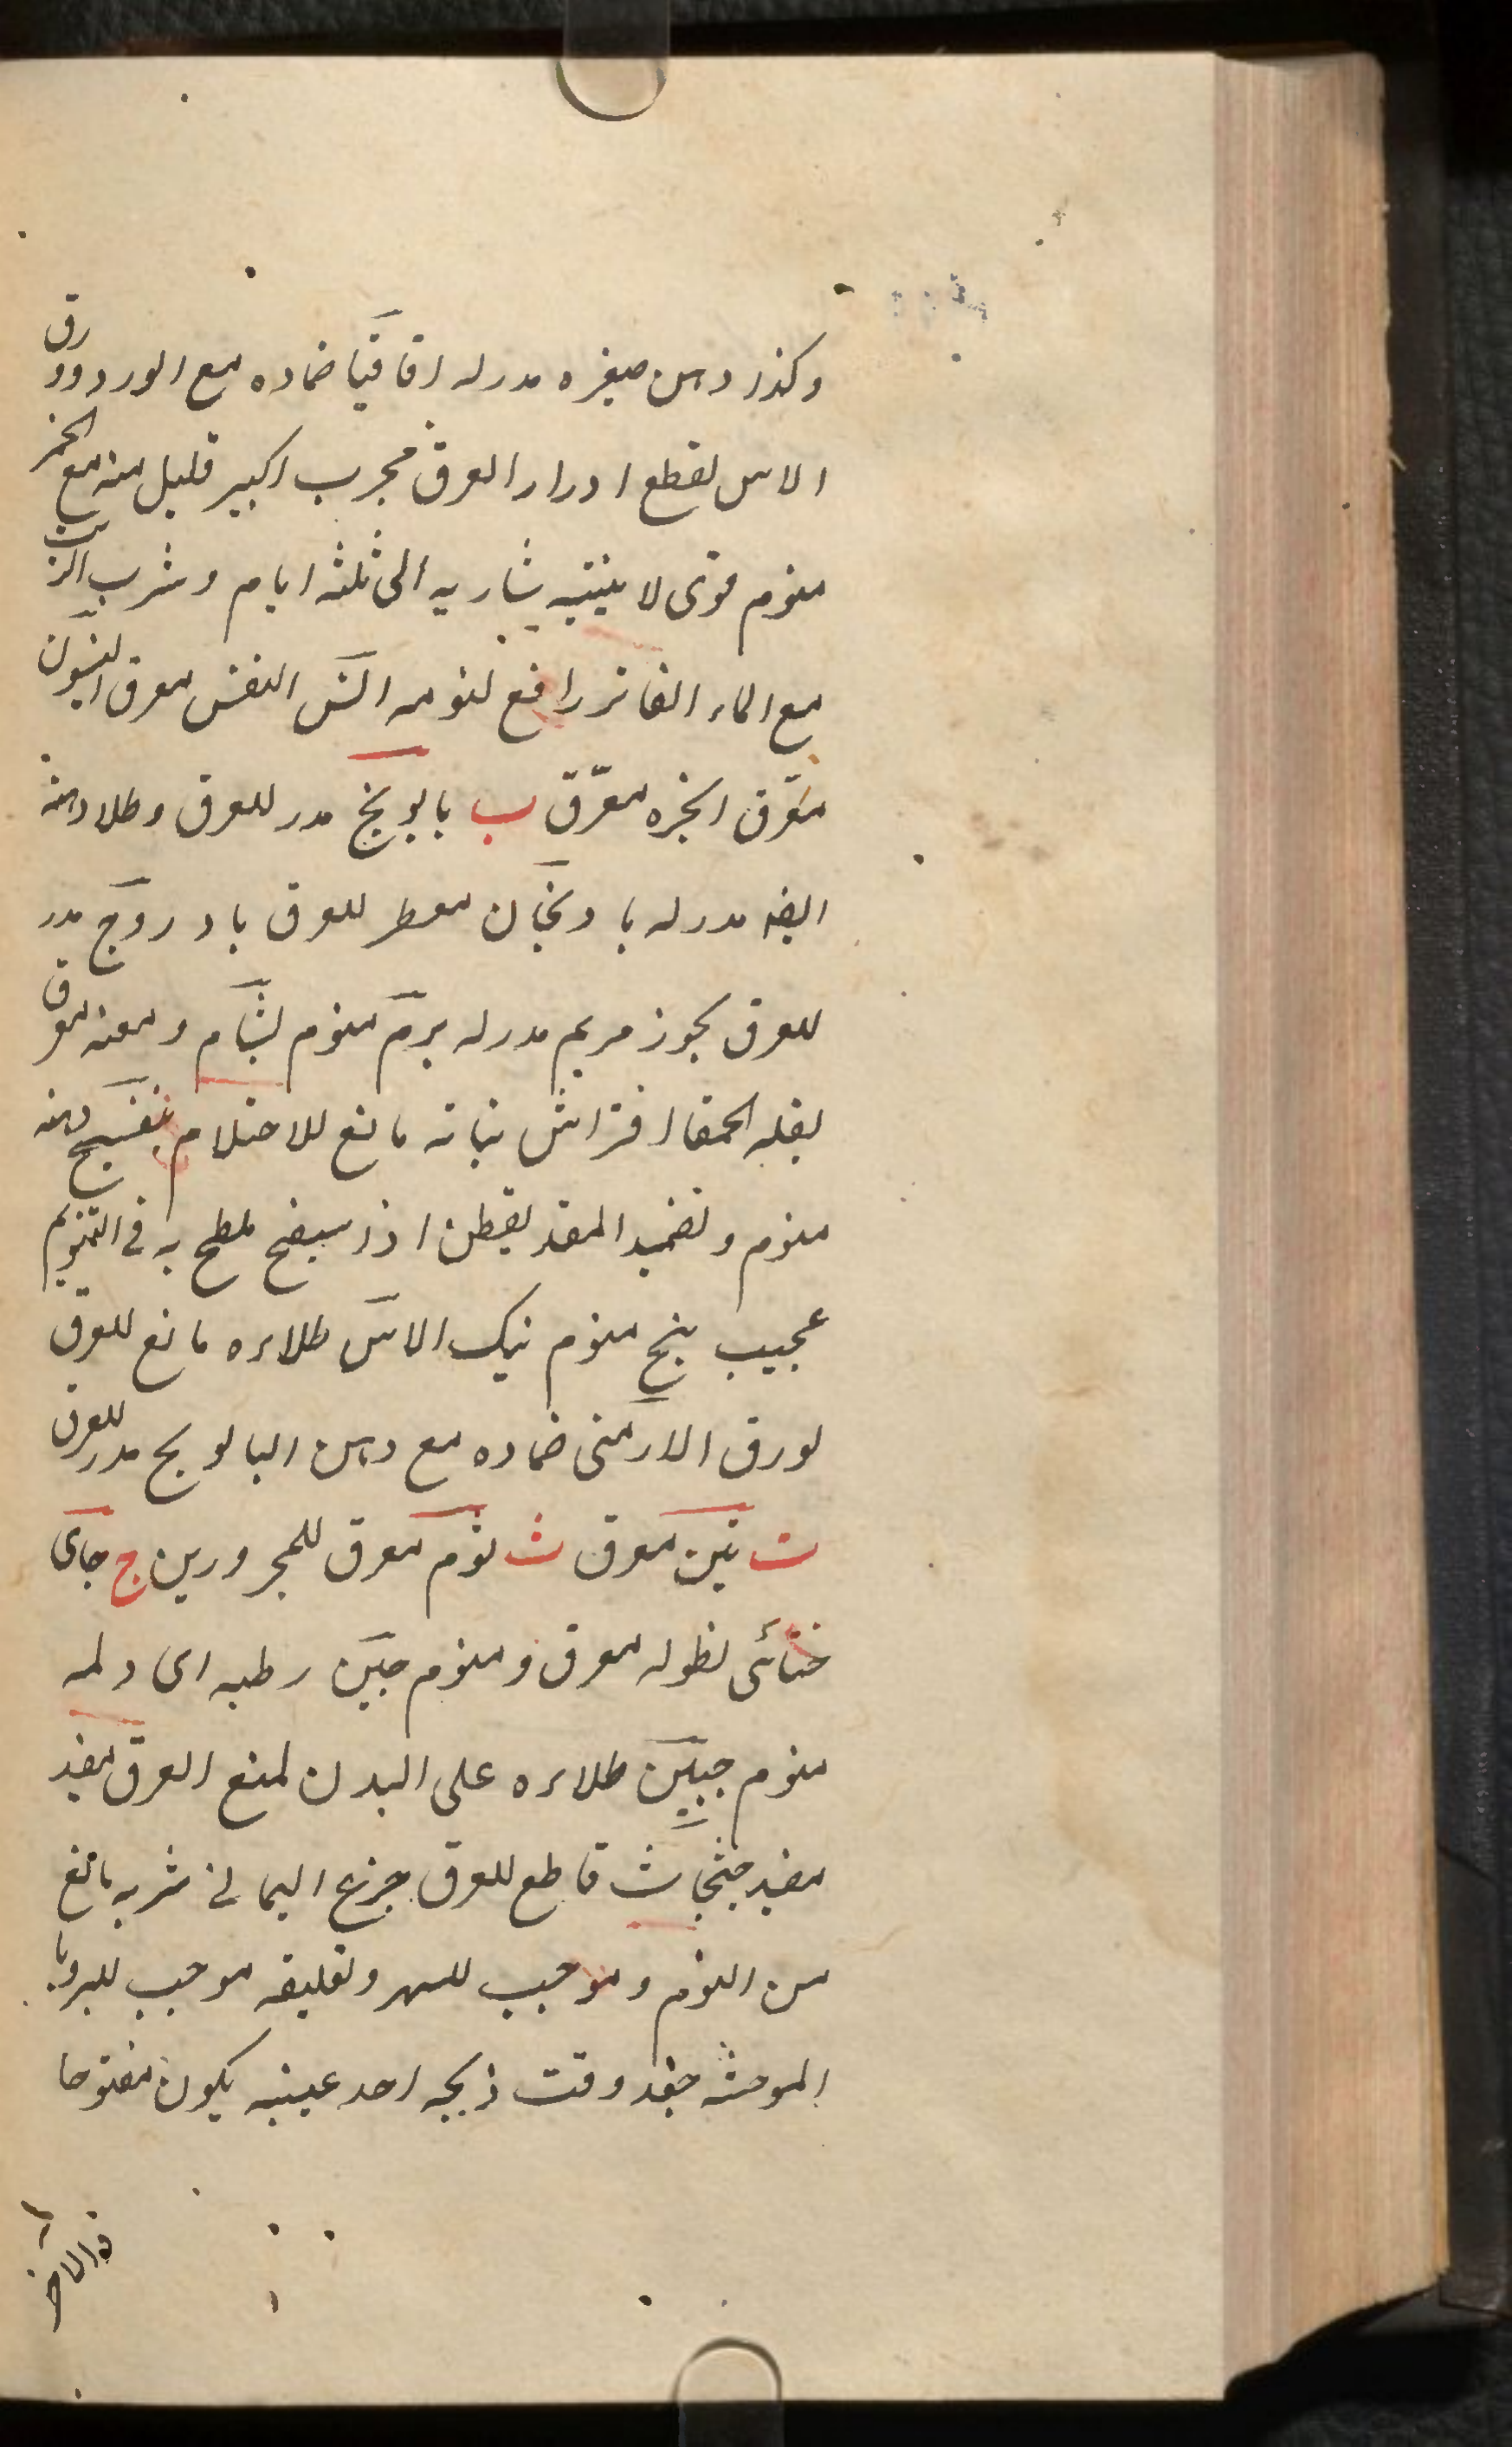 وكذا دهن صغيره مدر له اقاقيا ضماده مع الورد وورق
الاس لقطع ادرار العرق مجرب اكبير قليل منه مع الخمر
منوم قوى لا ينتبه شاربه الى ثلثه ايام وشرب الزيت
مع الماء الفاتر رافع لنومه انس النفس معرق انيسون
معرق انجره معرّق ب بابونج مدر للعرق وطلا دهنه
ايضه مدر له بادنجان معطر للعرق بادروج مدر
للعرق بخور مريم مدر له برم منوم بشام ومعنه معرق
بقله الحمقا افتراش نباته مانع للاحتلام بنفسج دهنه
منوم وتضميد المقد بقطن اذا سيفح ملطح به فى التنويم
عجيب بنج منوم نيك الاس طلاءه مانع للعرق
بورق الارمنى ضماده مع دهن البابونج مدر للعرق
ت تين معرق ث ثوم معرق للمحرورين ج جاى
ختائى نطوله معرق ومنوم جبن رطبه اى دلمه
منوم جبين طلاءه على البدن لمنع العرق مفيد
مفيد جثجاث قاطع للعرق جزع اليمانى شربه مانع
من النوم وموجب للسهر وتعليقه موجب للرويا
الموحشه جغد وقت ذبحه احد عينيه يكون مفتوحا
والاخر